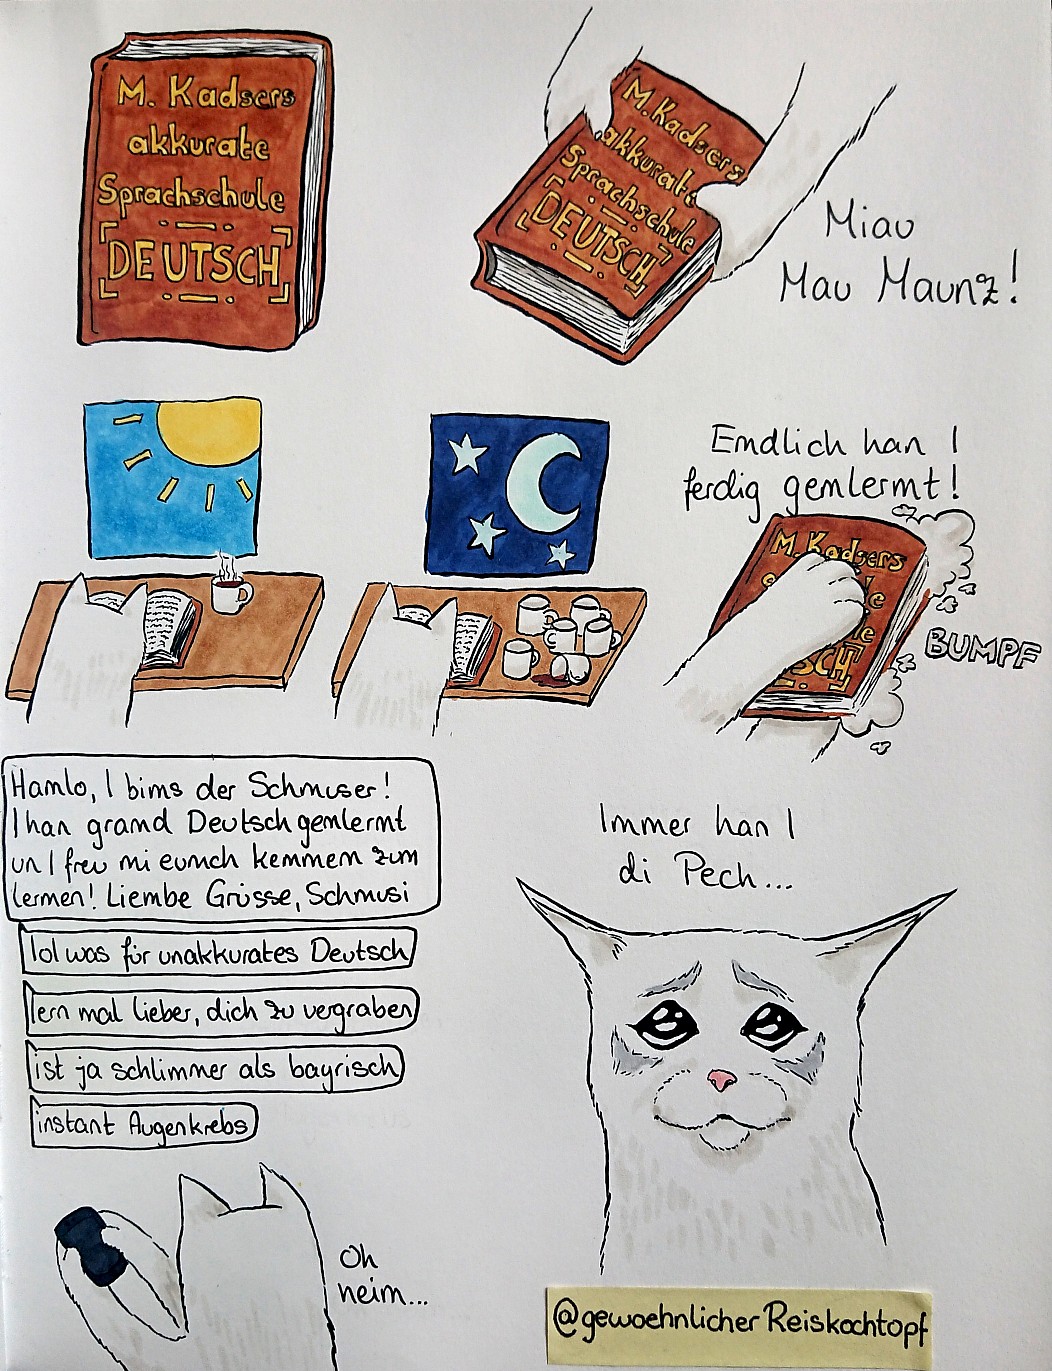 M. Kadsers
akkurate
Sprachschule
DEUTSCH
M. Kadsers
akkurate
Sprachschule
DEUTSCH
Miau
Mau Maunz!
Emdlich han I
ferdig gemlermt!
M. Kadsers
SCH
BUMPF
Hamlo, I bims der Schmuser!
I han gramd Deutsch gemlermt
un I freu mi eumch kemmem zum
lermen! Liembe Grüsse, Schmusi
lol was für unakkurates Deutsch
lern mal lieber, dich zu vergraben
ist ja schlimmer als bayrisch
instant Augenkrebs
Oh
neim...
Immer han I
di Pech...
@gewoehnlicherReiskochtopf